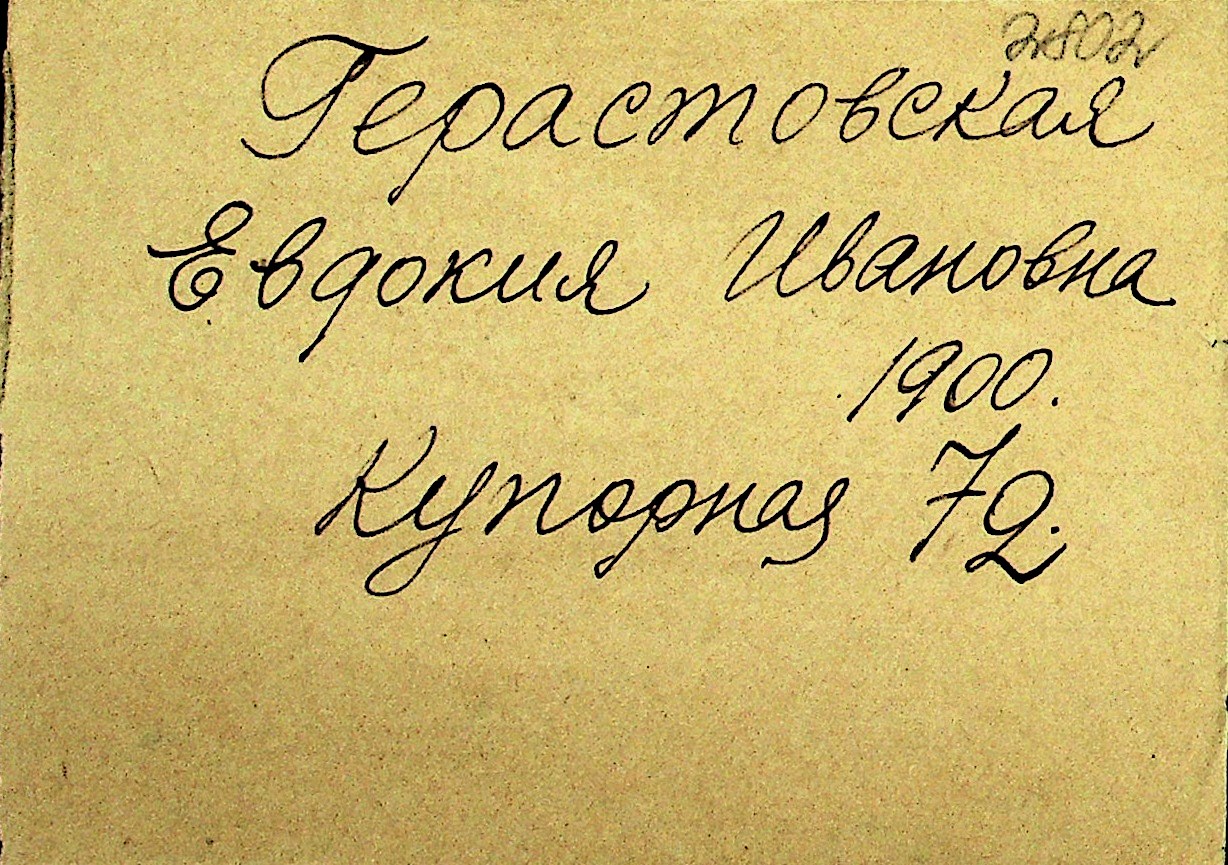 2802
Герастовская
Евдокия Ивановна
1900.
Купорная 72.